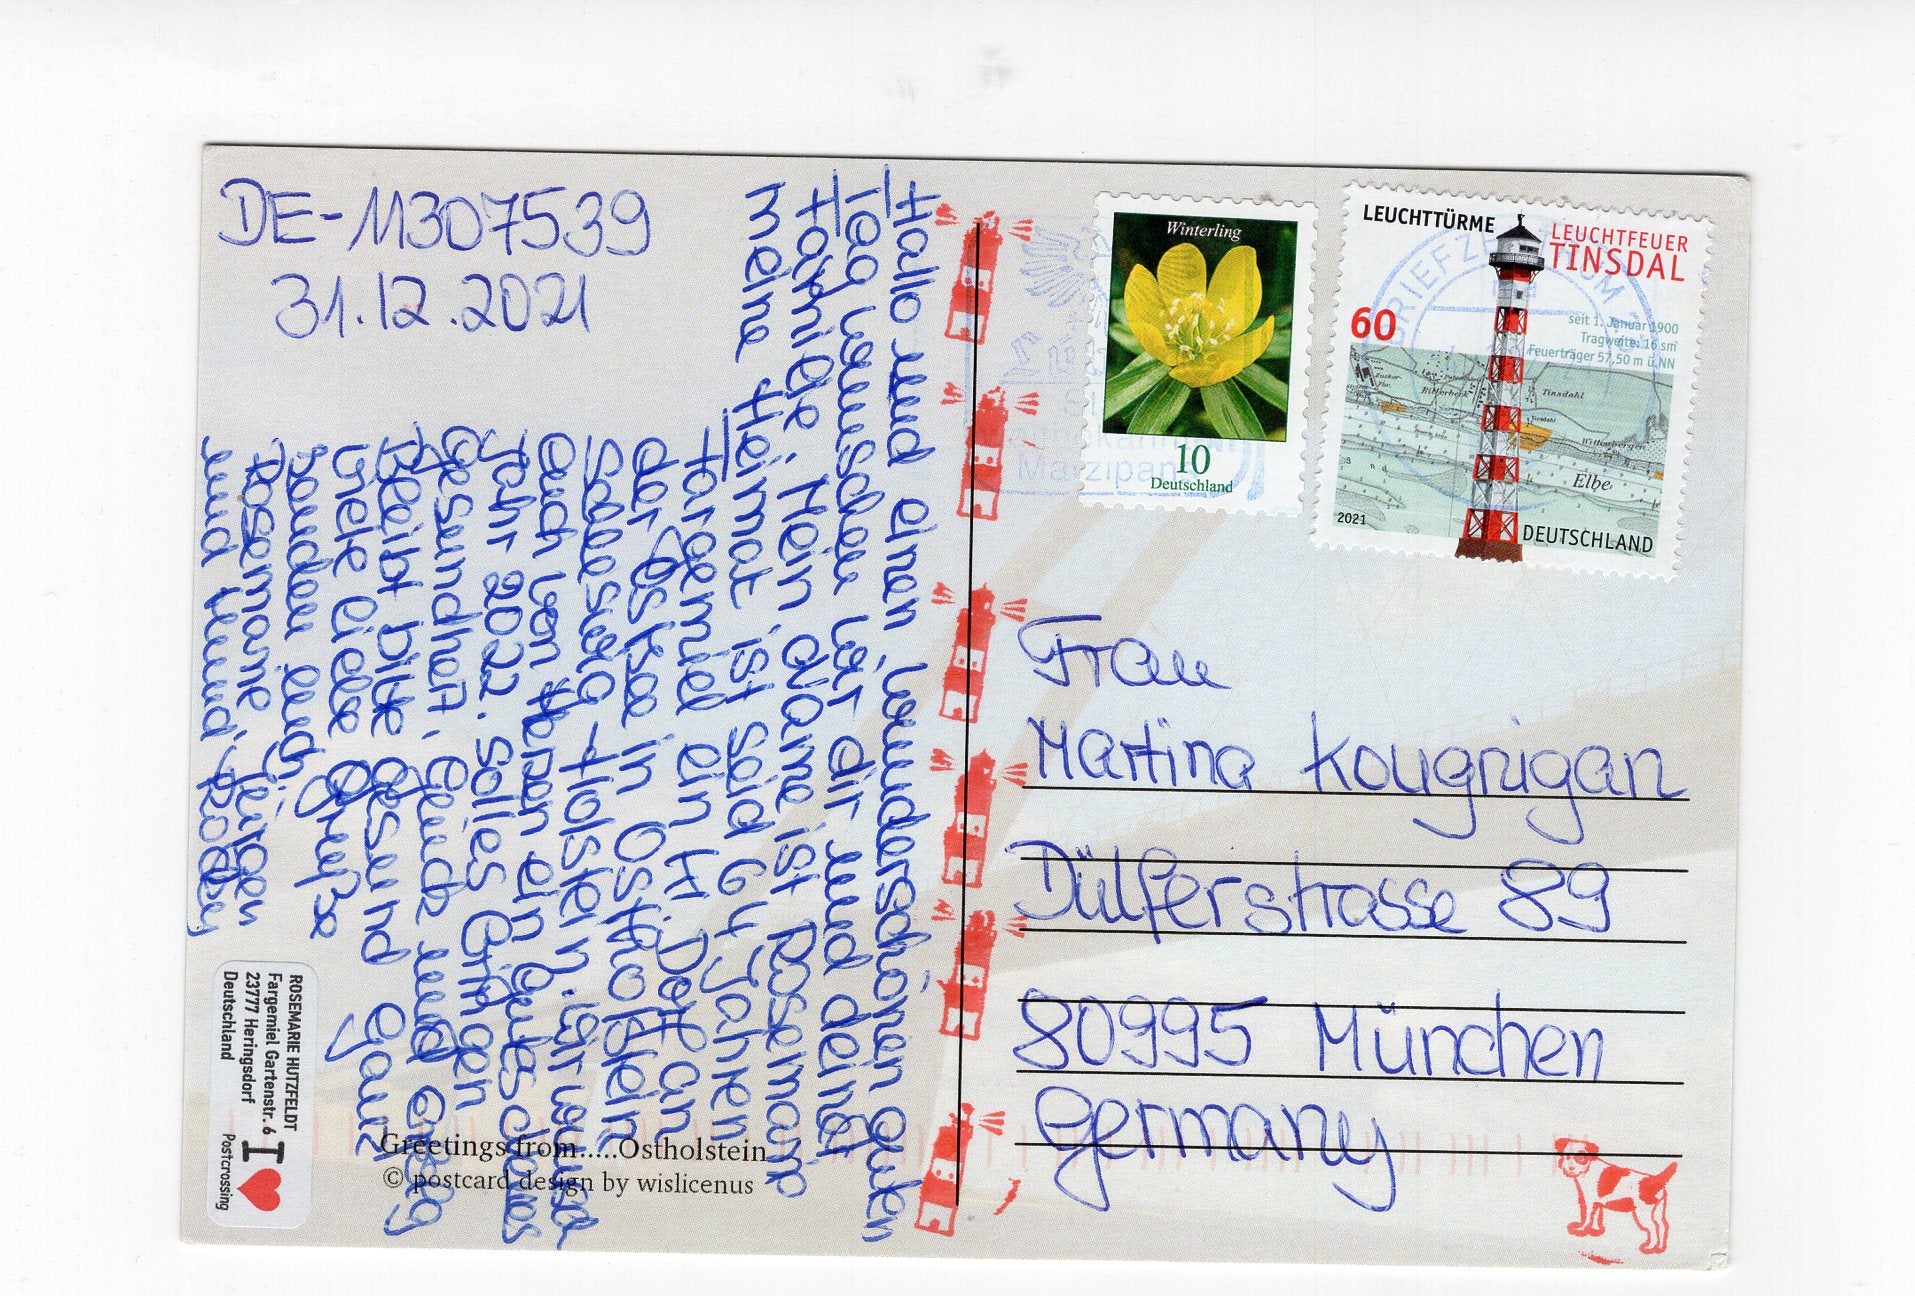 DE-11307539
31.12.2021
Hallo und einen wunderschönen guten
Tag wünschen wir dir und deiner
Familie. Mein Name ist Rosemarie
meine Heimat ist said 64 Jahren
Fargemiel ein Dorf an
der Ostsee in Ostholstein
Schleswig-Holstein. Wir wünschen
euch von Herzen ein gutes
Jahr 2022. Solles Bringen
Gesundheit, Glück und Erfolg
Bleibt bitte gesund ganz
viele liebe Grüße
senden euch
Rosemarie Jürgen
und
ROSEMARIE HUTZFELDT
Fargemiel Gartenstr. 6
23777 Heringsdorf
Deutschland
I
Postcrossing
Greetings from.....Ostholstein
© postcard design by wislicenus
Winterling
10
Deutschland
LEUCHTTÜRME
LEUCHTFEUER
TINSDAL
60
seit 1. Januar 1900
Tragweite: 16 sm
Feuerträger 57,50 m ü.NN
Tinsdahl
Wittenbergen
Elbe
2021
DEUTSCHLAND
BRIEFZENTRUM
Marzipan
Frau
Martina Kougrigan
Dülferstrasse 89
80995 München
Germany